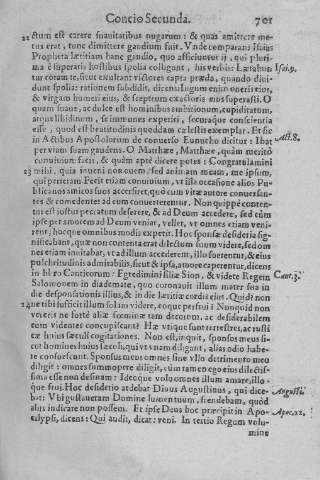 Concio Secunda. 701
22 ctum est carere suauitatibus nugarum: & quas amittere me-
tus erat, tunc dimittere gaudium fuit. Vnde comparans Isaias
Propheta lætitiam hanc gaudio, quo afficiuntur ij, qui pluri-
ma è superatis hostibus spolia colligunt, his verbis: Lætabun- Isai.9.
tur coram te, sicut exultant victores capta præda, quando diui-
dunt spolia: rationem subdidit, dicens: Iugum enim oneris eius,
& virgam humeri eius, & sceptrum exactoris eius superasti. O
quam suaue, ac dulce est hominibus ambitionum, cupiditatum,
atque libidinum, se immunes experiri, securaque conscientia
esse, quod est beatitudinis quoddam cælestis exemplar. Et sic
in Actibus Apostolorum de conuerso Eunucho dicitur: Ibat Act.8.
per viam suam gaudens. O Matthæe, Matthæe, quàm meritò
conuiuium facis, & quàm aptè dicere potes: Congratulamini
23 mihi, quia inueni non ouem, sed animam meam, me ipsum,
qui perieram. Fecit etiam conuiuium, vt illa occasione alios Pu-
blicanos amicos suos accerseret, quò cum vitæ autore conuersan-
tes & comedentes ad eum conuerterentur. Non quippe conten-
tus est iustus peccatum deserere, & ad Deum accedere, sed cùm
ipse per amorem ad Deum veniat, vellet, vt omnes etiam veni-
rent, hocque omnibus modis expetit. Hoc sponsæ desideria sig-
nificabant, quæ non contenta erat dilectum suum videre, sed om-
nes etiam inuitabat, vt ad illum accederent, illo fruerentur, & eius
pulchritudinis admirabilis, sicut & ipsa, amore caperentur, dicens
in libro Canticorum: Egredimini filiæ Sion, & videte Regem Cant.3.
Salomonem in diademate, quo coronauit illum mater sua in
die desponsationis illius, & in die lætitiæ cordis eius. Quid? non
24 tibi sufficit illum solam videre, eoque perfrui? Nunquid non
vereris ne fortè aliæ fœminæ tam decorum, ac desiderabilem
cum videntes concupiscant? Hæ vtique sunt terrestres, ac rusti-
cæ huius sæculi cogitationes. Non est, inquit, sponsus meus si-
cut homines huius sæculi, qui vt unam diligunt, alias odio habe-
re consuescunt. Sponsus meus omnes sine vllo detrimento meo
diligit: omnes summopere diligit, cùm tamen ego eius dilectis-
sima esse non desinam: Ideoque volo omnes illum amare, illo-
que frui. Hoc desiderio ardebat Diuus Augustinus, qui dice- Augusti.
bat: Vbi gustaueram Domine lumen tuum, frendebam, quòd
alijs indicare non possem. Et ipse Deus hoc præcepit in Apo- Apoc.22.
calypsi, dicens: Qui audit, dicat: veni. In tertio Regum volu-
mine